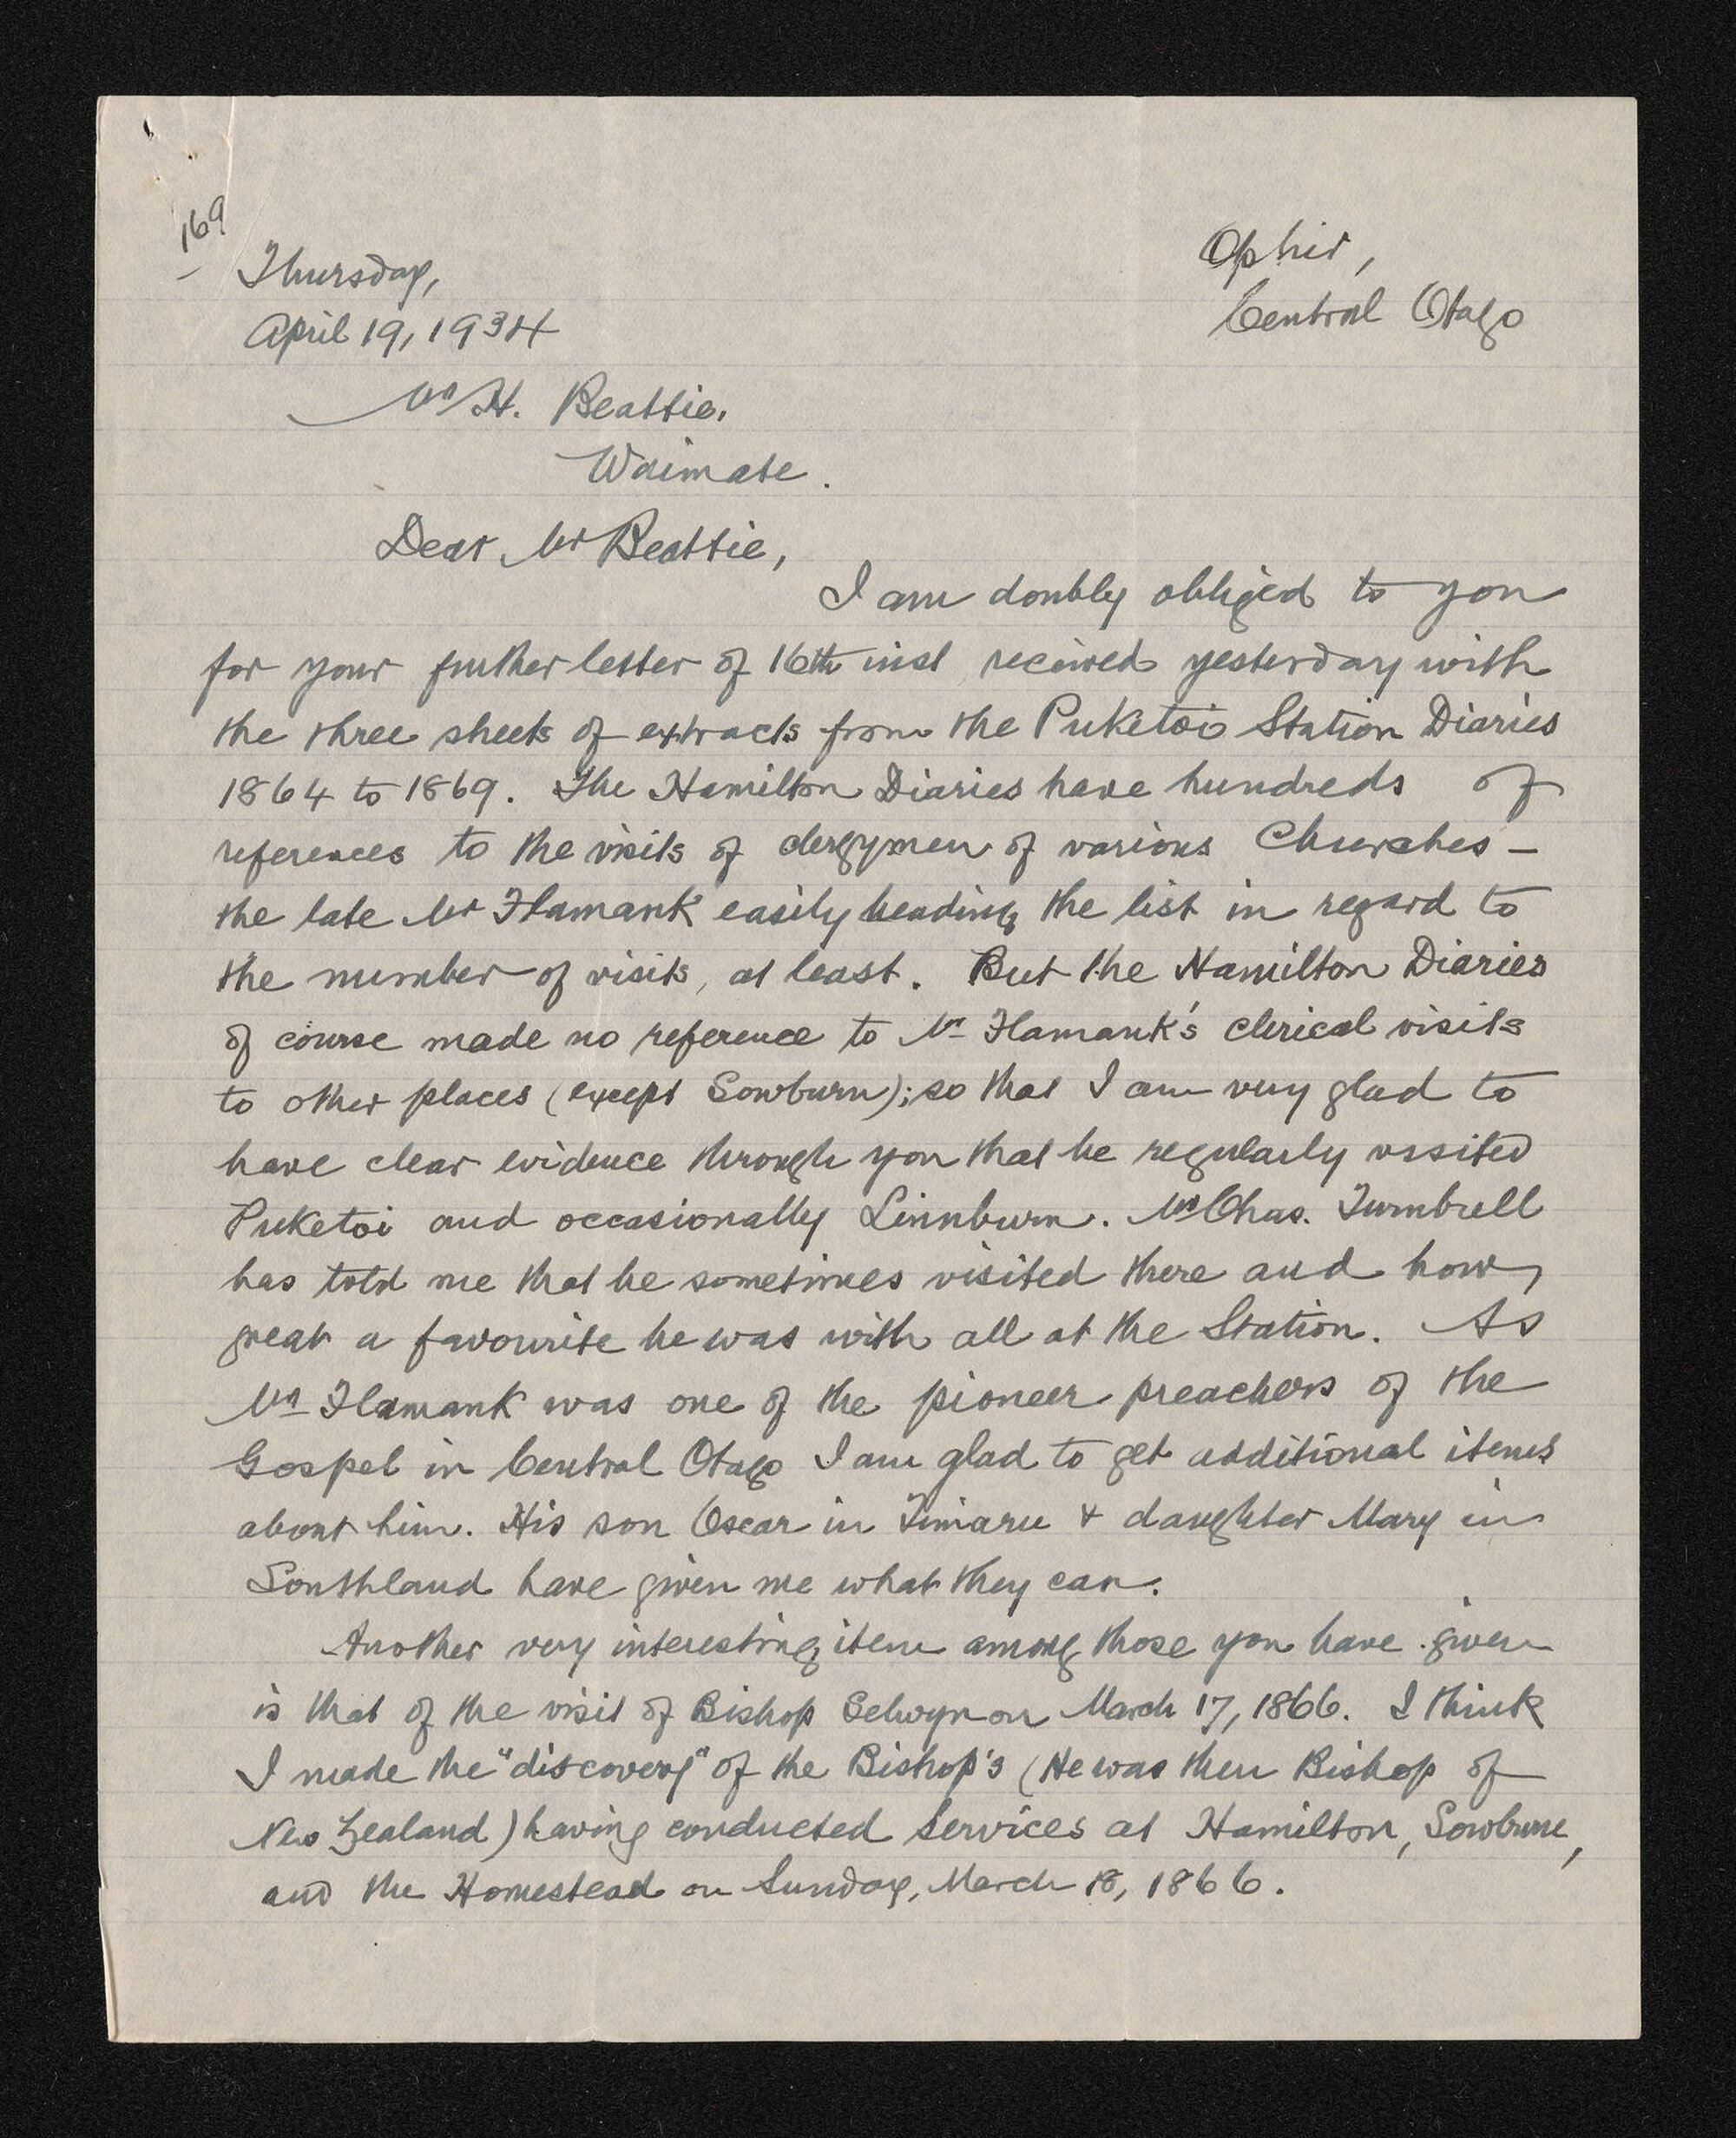 169
Thursday,
April 19, 1934
Ophir,
Central Otago
Mr H. Beattie.
Waimate.
Dear Mr Beattie,
I am doubly obliged to you
for your further letter of 16th inst received yesterday with
the three sheets of extracts from the Puketoi Station Diaries
1864 to 1869. The Hamilton Diaries have hundreds of
references to the visits of clergymen of various Churches –
the late Mr Flamank easily heading the list in regard to
the number of visits, at least. But the Hamilton Diaries
of course made no reference to Mr Flamank's clerical visits
to other places (except Sowburn); so that I am very glad to
have clear evidence through you that he regularly visited
Puketoi and occasionally Linnburn. Mr Chas. Turnbull
has told me that he sometimes visited there and how
great a favourite he was with all at the Station. As
Mr Flamank was one of the pioneer preachers of the
Gospel in Central Otago I am glad to get additional items
about him. His son Oscar in Timaru & daughter Mary in
Southland have given me what they can.
Another very interesting item among those you have given
is that of the visit of Bishop Selwyn on March 17, 1866. I think
I made the "discovery" of the Bishop's (He was then Bishop of
New Zealand) having conducted services at Hamilton, Sowburn,
and the Homestead on Sunday, March 18, 1866.